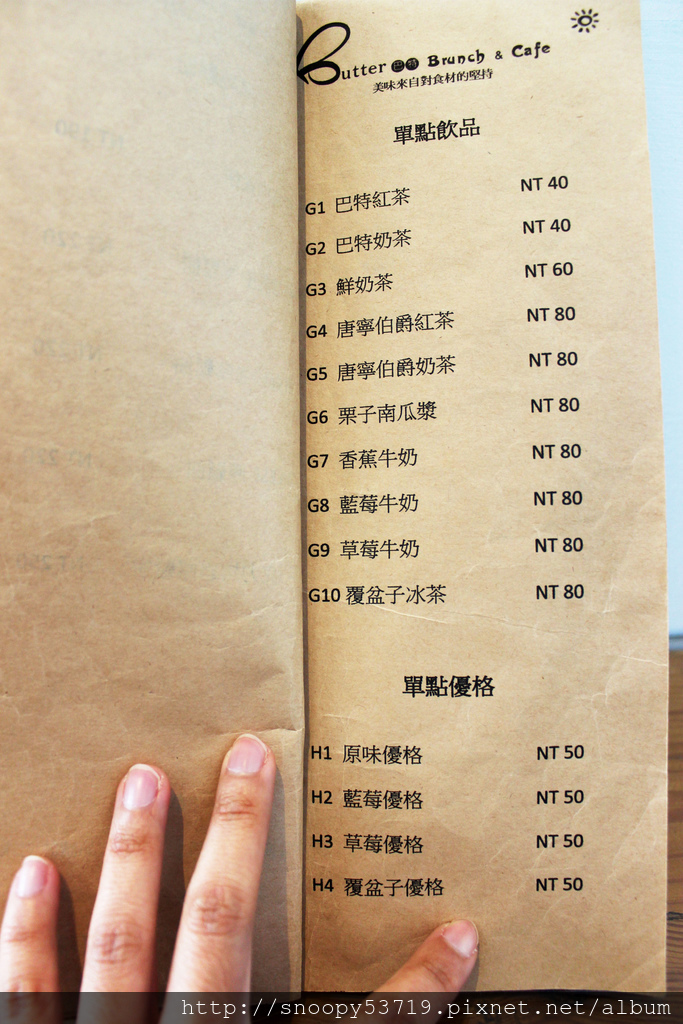 Butter 巴特 Brunch & Cafe
美味來自對食材的堅持
單點飲品
G1 巴特紅茶 NT 40
G2 巴特奶茶 NT 40
G3 鮮奶茶 NT 60
G4 唐寧伯爵紅茶 NT 80
G5 唐寧伯爵奶茶 NT 80
G6 栗子南瓜漿 NT 80
G7 香蕉牛奶 NT 80
G8 藍莓牛奶 NT 80
G9 草莓牛奶 NT 80
G10 覆盆子冰茶 NT 80
單點優格
H1 原味優格 NT 50
H2 藍莓優格 NT 50
H3 草莓優格 NT 50
H4 覆盆子優格 NT 50
http://snoopy53719.pixnet.net/album